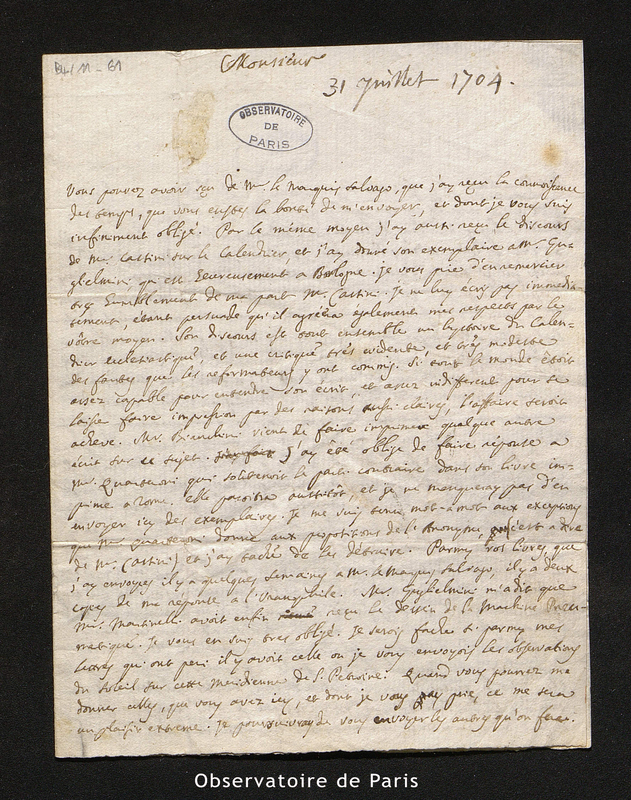 B4/11-61
Monsieur
31 Juillet 1704.
OBSERVATOIRE
DE
PARIS
Vous pouvez avoir sçu de Mr. le Marquis Salvago, que j'ay reçu la connoissance
des temps, que vous eustes la bonté de m'envoyer, et dont je vous suis
infiniment obligé. Par le même moyen j'ay aussi reçu le discours
de Mr. Cassini sur le Calendrier, et j'ay donné son exemplaire a Mr. Gu-
glielmini qui est heureusement a Bologne. Je vous prie d'en remercier
tres humblement de ma part Mr. Cassini. Je ne luy écris pas immedia-
tement, étant persuadé qu'il agréera également mes respects par le
vôtre moyen. Son discours est tout ensemble un hystoire du Calen-
drier ecclesiastique, et une critique très evidente, et très modeste
des fautes que les reformateurs y ont commis. Si tout le monde étoit
assez capable pour entendre son écrit, et assez indifferent pour se
laisser faire impression par des raisons aussi claires, l'affaire seroit
achevé. Mr. Bianchini vient de faire imprimer quelque autre
écrit sur ce sujet. J'ay été obligé de faire réponse a
Mr. Quarteroni qui soutenoit le parti contraire dans son livre im-
primé a Rome. Elle paroitra aussitôt, et je ne manqueray pas d'en
envoyer icy des exemplaires. Je me suis tenu mot-a-mot aux exceptions
que Mr. Quarteroni donne aux propositions de l'Anonyme c'est a dire
de Mr. Cassini) et j'ay taché de les détruire. Parmy vos livres, que
j'ay envoyés il y a quelques semaines a Mr. le Marquis Salvago, il y a deux
copies de ma réponse a l'. Mr. Guglielmini m'a dit que
Mr. Martinelli avoit enfin reçu le dessin de la Machine Pneu-
matique. Je vous en suis tres obligé. Je serois faché si parmy mes
lettres qui ont peri il y avoit celle ou je vous envoyois les observations
du Soleil sur cette Meridienne de S. Petrone. Quand vous pourrez me
donner celles, que vous avez icy, et dont je vous prié ce me sera
un plaisir extreme. Je poursuivray de vous envoyer les autres qu'on fera.
Observatoire de Paris